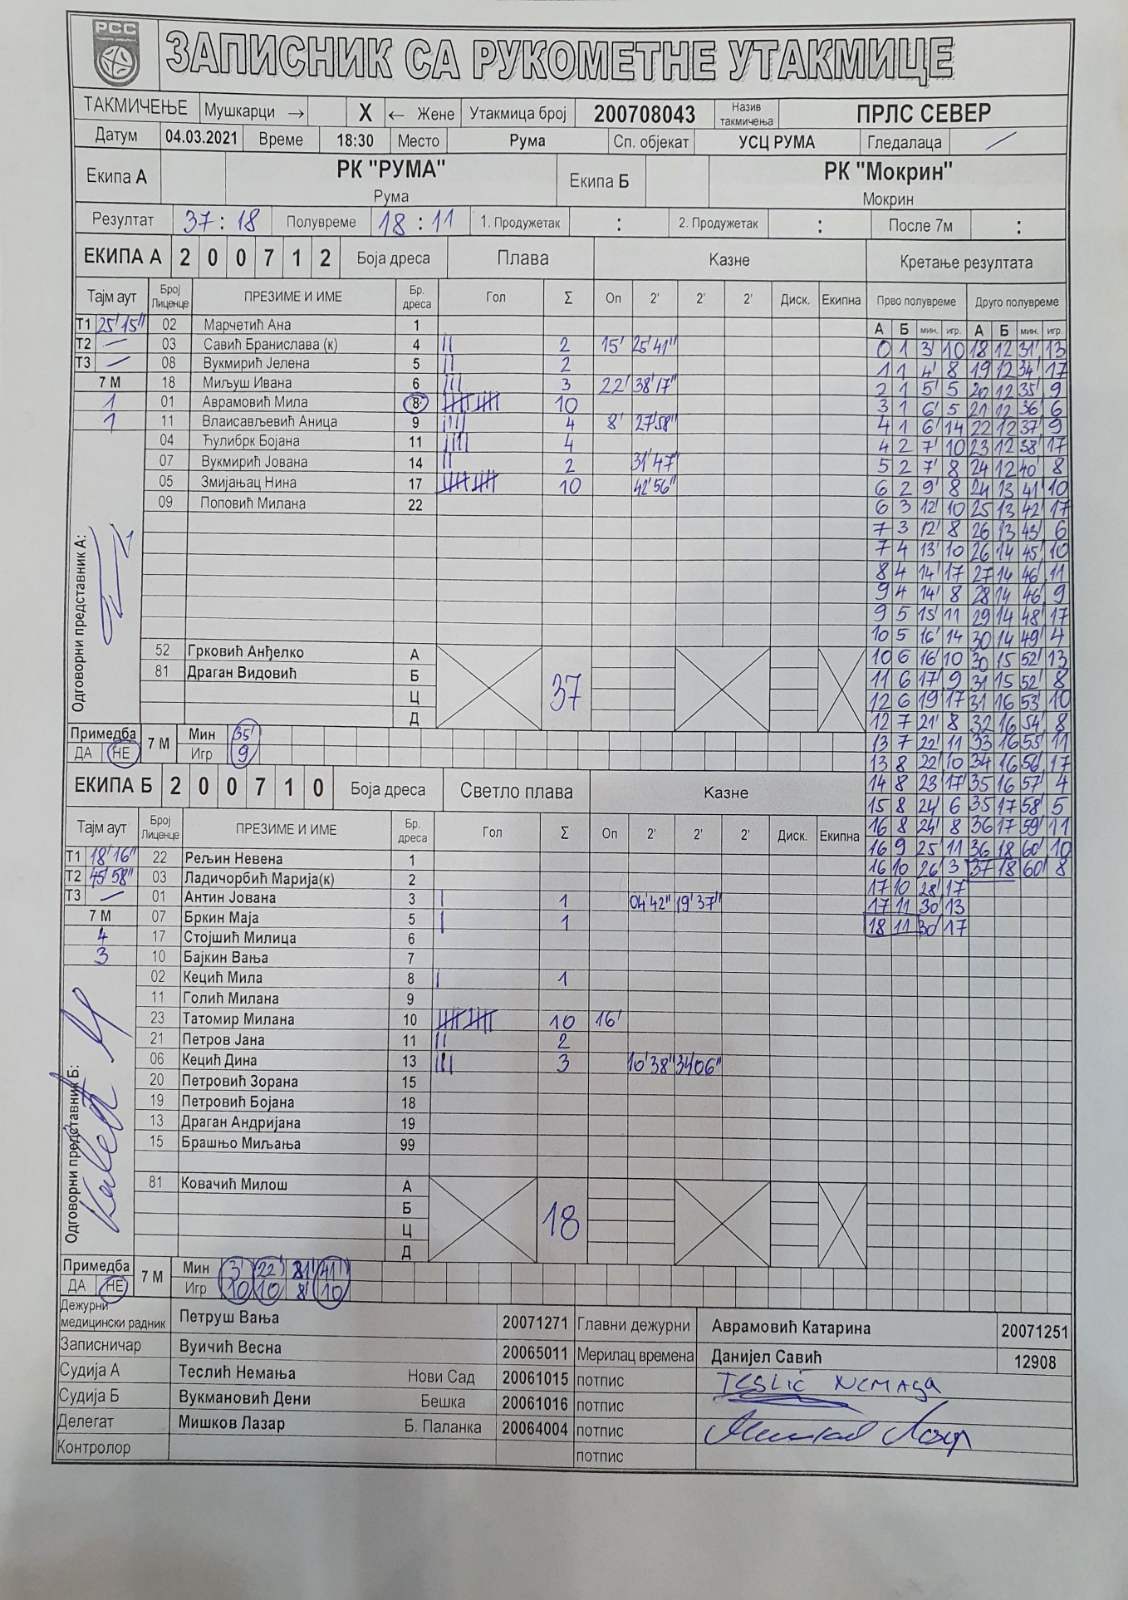 РСС
ЗАПИСНИК СА РУКОМЕТНЕ УТАКМИЦЕ
ТАКМИЧЕЊЕ Мушкарци → X ← Жене Утакмица број 200708043 Назив такмичења ПРЛС СЕВЕР
Датум 04.03.2021 Време 18:30 Место Рума Сп. објекат УСЦ РУМА Гледалаца /
Екипа А РК "РУМА" Рума Екипа Б РК "Мокрин" Мокрин
Резултат 37 : 18 Полувреме 18 : 11 1. Продужетак : 2. Продужетак : После 7м :
ЕКИПА А 2 0 0 7 1 2 Боја дреса Плава Казне Кретање резултата
Тајм аут Број Лиценце ПРЕЗИМЕ И ИМЕ Бр. дреса Гол Σ Оп 2' 2' 2' Диск. Екипна Прво полувреме Друго полувреме
А Б мин. игр. А Б мин. игр.
Т1 25'15" 02 Марчетић Ана 1
Т2 — 03 Савић Бранислава (к) 4 || 2 15' 25'41"
Т3 — 08 Вукмирић Јелена 5 || 2
7 М 18 Миљуш Ивана 6 ||| 3 22' 38'17"
1 01 Аврамовић Мила 8 10
1 11 Влаисављевић Аница 9 |||| 4 8' 27'58"
04 Ћулибрк Бојана 11 |||| 4
07 Вукмирић Јована 14 || 2 31'47"
05 Змијањац Нина 17 10 42'56"
09 Поповић Милана 22
0 1 3' 10 18 12 31' 13
1 1 4' 8 19 12 34' 17
2 1 5' 5 20 12 35' 9
3 1 6' 5 21 12 36 6
4 1 6' 14 22 12 37' 9
4 2 7' 10 23 12 38' 17
5 2 7' 8 24 12 40' 8
6 2 9' 8 24 13 41' 10
6 3 12' 10 25 13 42' 17
7 3 12' 8 26 13 43' 6
7 4 13' 10 26 14 45' 10
8 4 14' 17 27 14 46' 11
9 4 14' 8 28 14 46 9
9 5 15' 11 29 14 48' 17
10 5 16' 14 30 14 49' 4
10 6 16' 10 30 15 52' 13
11 6 17' 9 31 15 52' 8
12 6 19' 17 31 16 53' 10
12 7 21' 8 32 16 54' 8
13 7 22' 11 33 16 55' 11
13 8 22' 10 34 16 56' 17
14 8 23' 17 35 16 57' 4
15 8 24' 6 35 17 58' 5
16 8 24' 8 36 17 59' 11
16 9 25' 11 36 18 60' 10
16 10 26' 3 37 18 60' 8
17 10 28' 17
17 11 30' 13
18 11 30' 17
Одговорни представник А:
52 Грковић Анђелко А
81 Драган Видовић Б
Ц
Д
37
Примедба ДА НЕ 7 М Мин 35'
Игр 9
ЕКИПА Б 2 0 0 7 1 0 Боја дреса Светло плава Казне
Тајм аут Број Лиценце ПРЕЗИМЕ И ИМЕ Бр. дреса Гол Σ Оп 2' 2' 2' Диск. Екипна
Т1 18'16" 22 Рељин Невена 1
Т2 45'58" 03 Ладичорбић Марија(к) 2
Т3 — 01 Антин Јована 3 | 1 04'42" 19'37"
7 М 07 Бркин Маја 5 | 1
4 17 Стојшић Милица 6
3 10 Бајкин Вања 7
02 Кецић Мила 8 | 1
11 Голић Милана 9
23 Татомир Милана 10 10 16'
21 Петров Јана 11 || 2
06 Кецић Дина 13 ||| 3 10'38" 34'06"
20 Петровић Зорана 15
19 Петровић Бојана 18
13 Драган Андријана 19
15 Брашњо Миљања 99
Одговорни представник Б:
81 Ковачић Милош А
Б
Ц
Д
18
Примедба ДА НЕ 7 М Мин 3' 22' 31' 41'
Игр 10 10 8' 10
Дежурни медицински радник Петруш Вања 20071271 Главни дежурни Аврамовић Катарина 20071251
Записничар Вуичић Весна 20065011 Мерилац времена Данијел Савић 12908
Судија А Теслић Немања Нови Сад 20061015 потпис Teslić Nemaњa
Судија Б Вукмановић Дени Бешка 20061016 потпис
Делегат Мишков Лазар Б. Паланка 20064004 потпис Мишков Лазар
Контролор потпис